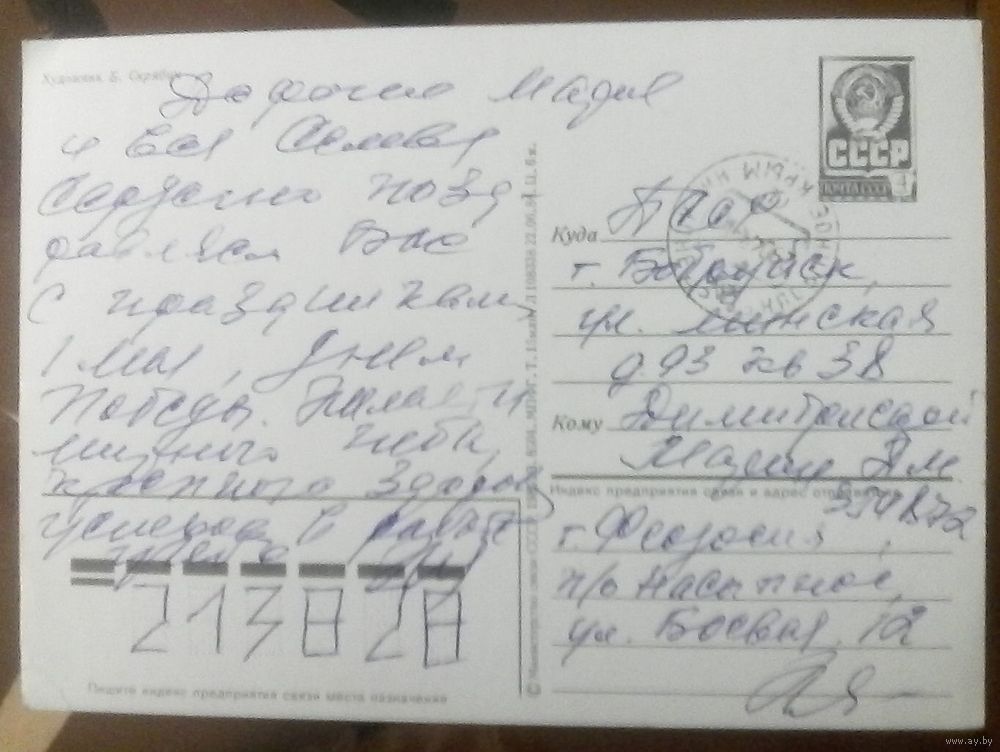 Художник Б. Скрябин
Дорогие Мария
и вся Семья
Сердечно позд
равляем Вас
с праздниками
1 мая, Днем
Победы. Желаем
мирного неба,
крепкого здоровья
успехов в работе
213828
Пишите индекс предприятия связи места назначения
СССР
ПОЧТА СССР
Куда
г. Бобруйск,
ул. Минская
д 93 кв 38
Кому Димитриевой
Марии
Индекс предприятия связи и адрес отправителя
334872
г. Феодосия,
п/о Насыпное,
ул. Боевая, 12
www.ay.by